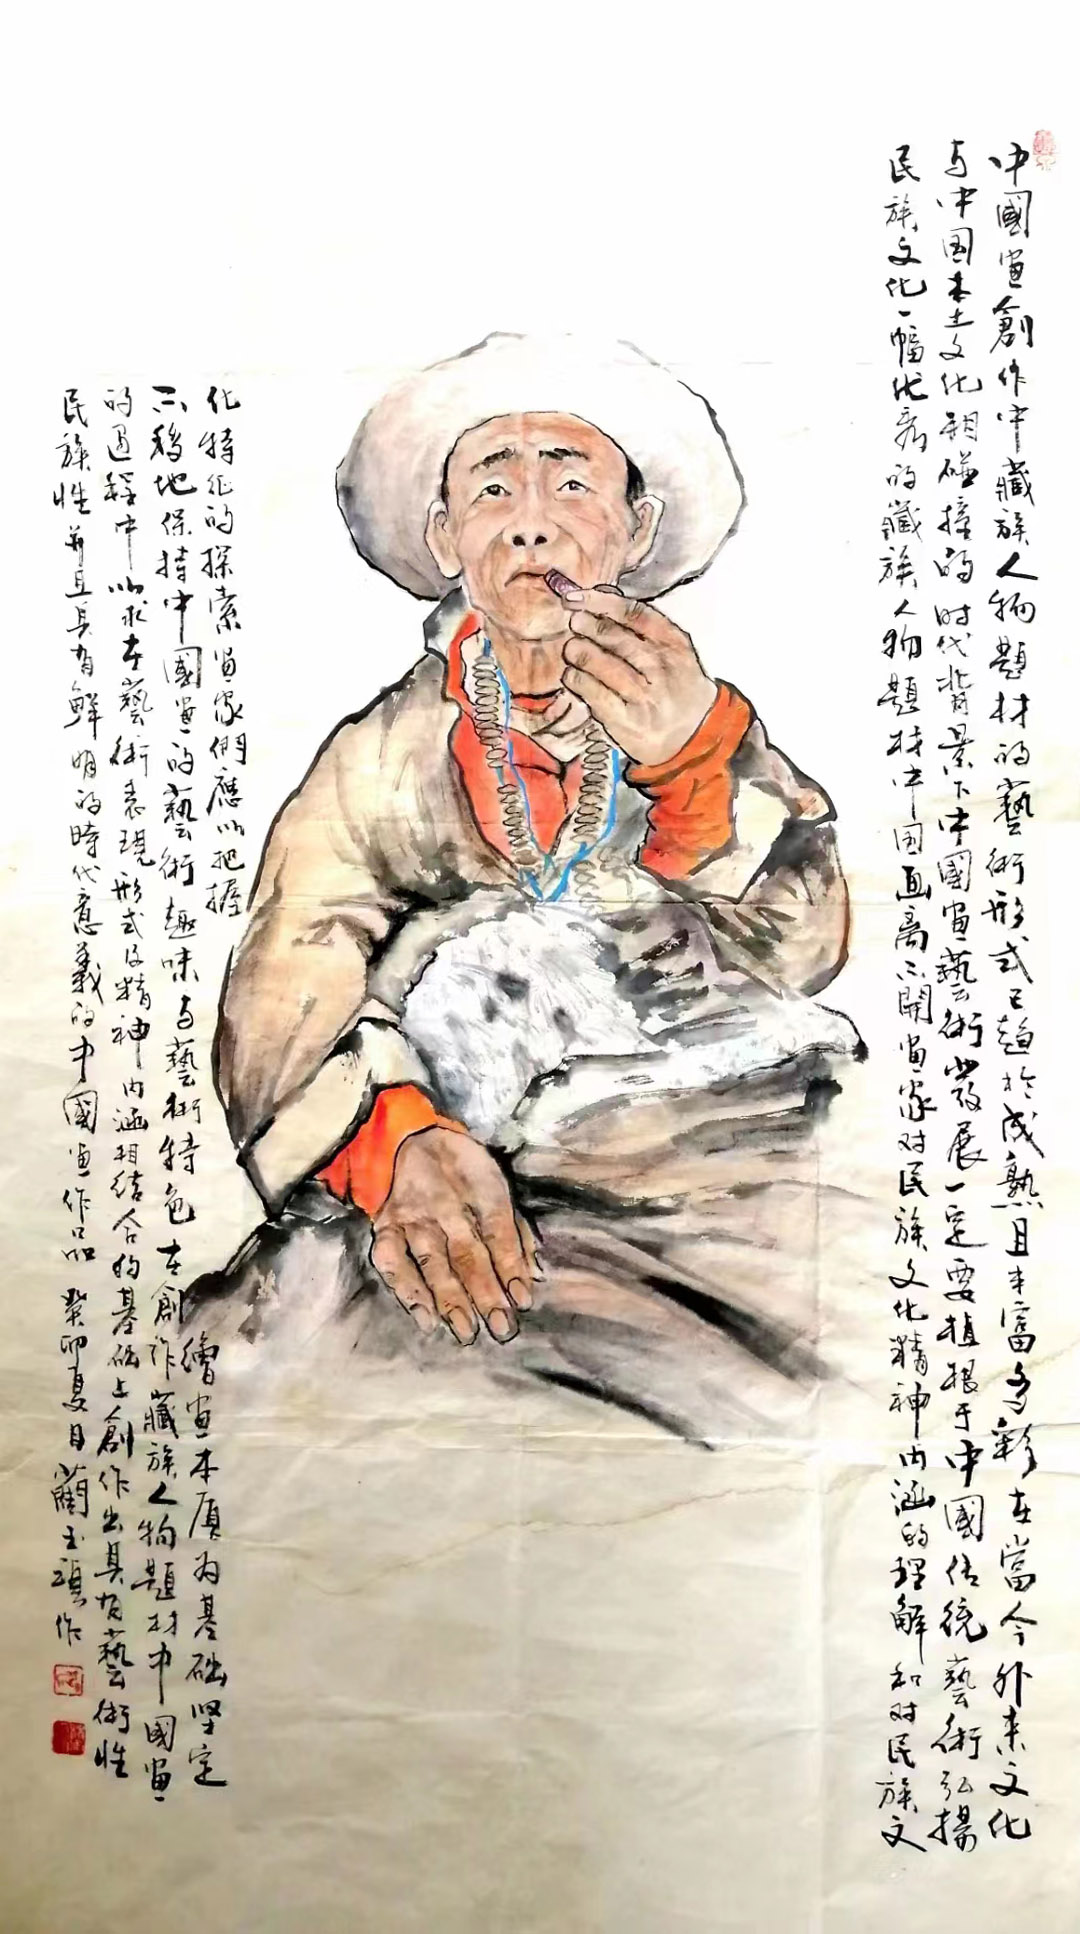 中國畫創作中藏族人物題材的藝術形式已趋於成熟且丰富多彩在當今外来文化
与中国本土文化相碰撞的时代背景下中國畫藝術發展一定要植根于中國传统藝術弘揚
民族文化一幅优秀的藏族人物题材中国画离不開畫家对民族文化精神内涵的理解和对民族文
化特征的探索畫家們應以把握
繪畫本质为基础坚定
不移地保持中國畫的藝術趣味与藝術特色在創作藏族人物题材中國畫
的过程中以求在藝術表現形式及精神内涵相结合的基础上創作出具有藝術性
民族性并且具有鲜明的時代意義的中國画作品 癸卯夏月蘭玉
作